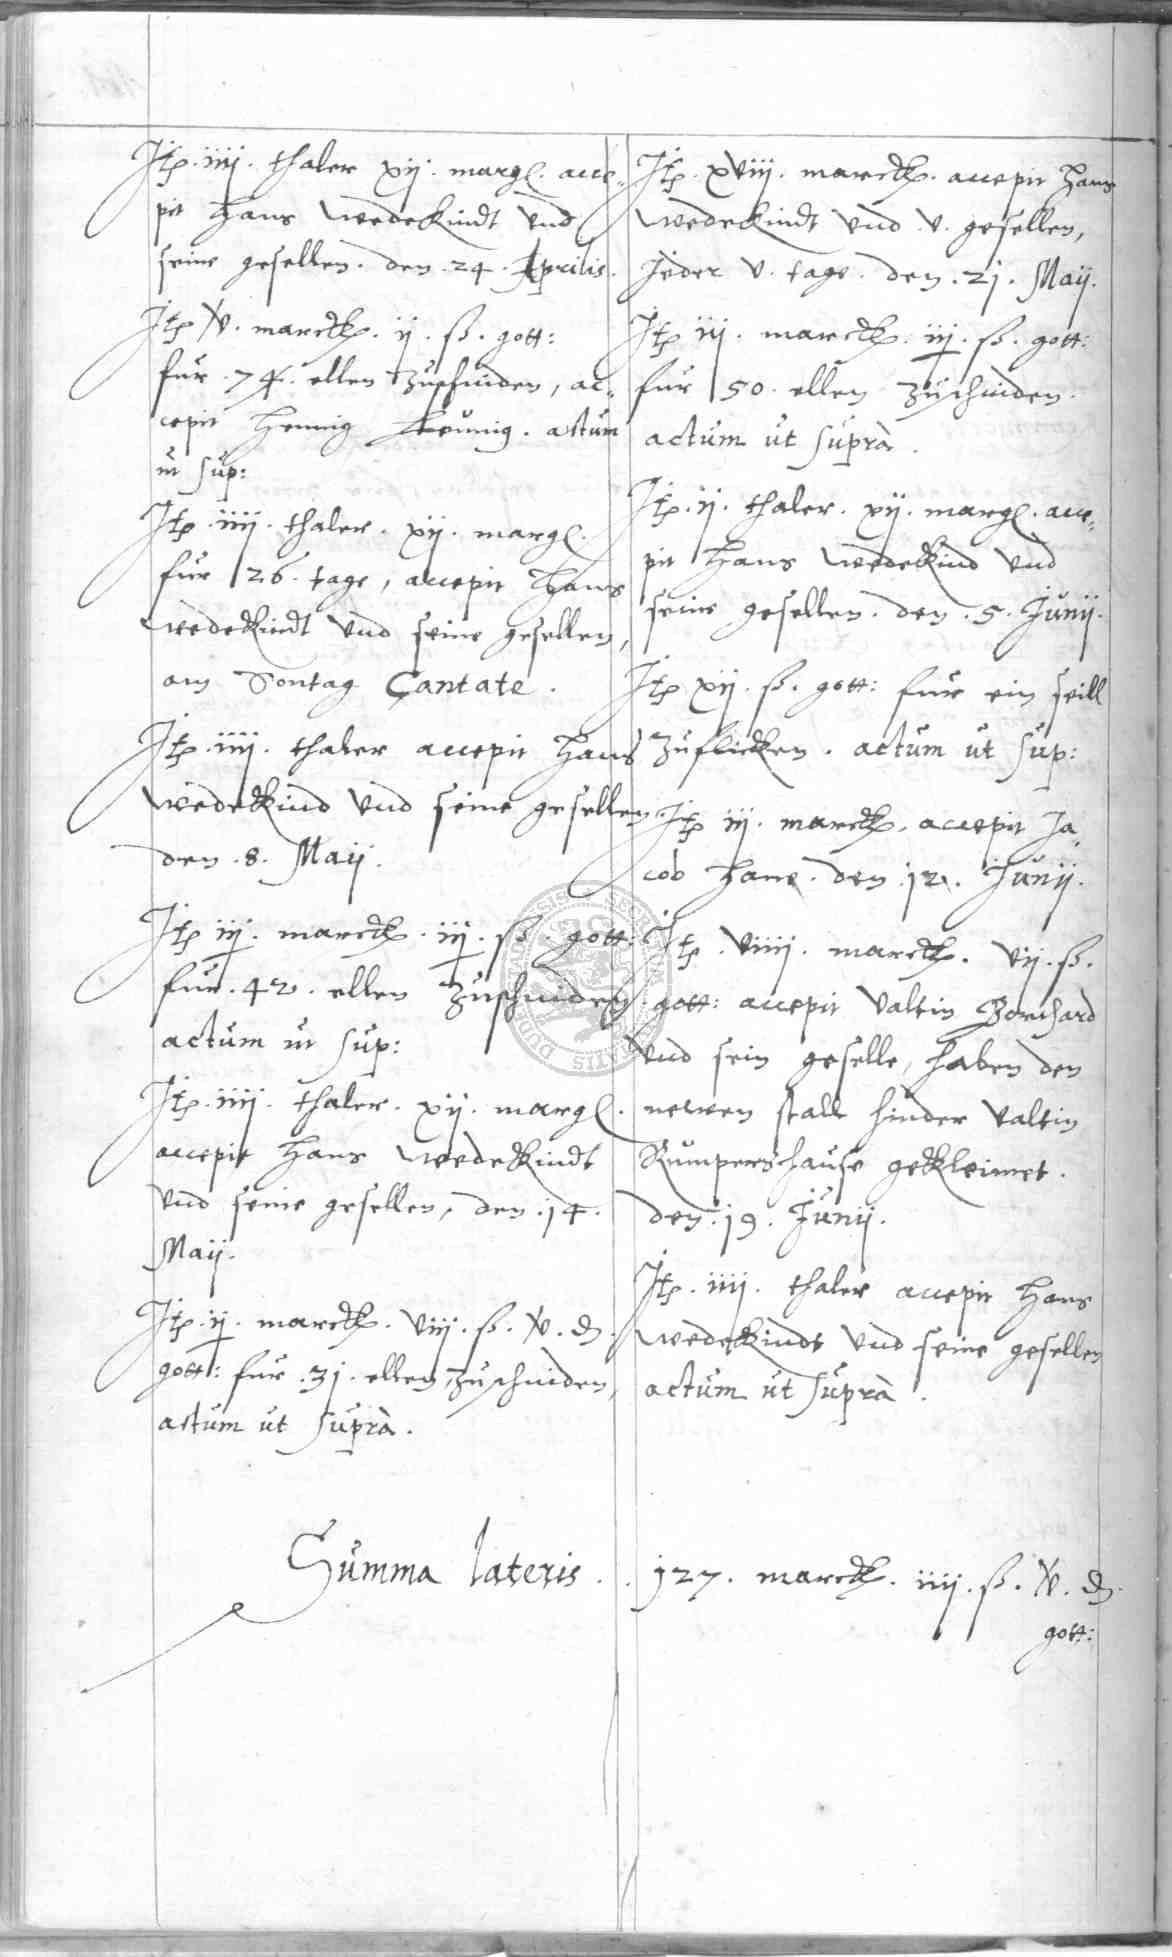 Itp. iiij. thaler xij. marg. acce-
pit Hans Wedekindt vnd
seine gesellen. den. 24. Aprilis.
Itp v. marck. ij. ß. gott:
fur. 74. ellen zuschniden, ac-
cepit Hennig Keunig. actum
ut sup:
Itp. iiij. thaler. xij. marg.
fur 26. tage, accepit Hans
Wedekindt vnd seine gesellen,
am Sontag Cantate.
Itp. iiij. thaler accepit Hans
Wedekind vnd seine gesellen
den. 8. Maij.
Itp iij. marck. iij. ß gott:
fur. 42. ellen zuschniden
actum ut sup:
Itp. iiij. thaler. xij. marg.
accepit Hans Wedekindt
vnd seine gesellen, den. 14.
Maij.
Itp. ij. marck. viij. ß. v. d.
gott: fur. 31. ellen zuschniden,
actum ut suprà.
Itp. xviij. marck. accepit Hans
Wedekindt vnd. v. gesellen,
Jeder v. tage. den. 21. Maij.
Itp iij. marck. iij. ß. gott:
fur 50. ellen zuschniden.
actum ut suprà.
Itp. ij. thaler. xij. marg. acce-
pit Hans Wedekind vnd
seine gesellen. den. 5. Junij.
Itp xij. ß. gott: fur ein seill
zuflicken. actum ut sup:
Itp iij. marck. accepit Ja-
cob Hane. den. 12. Junij.
Itp. viiij. marck. vij. ß.
gott: accepit Valtin Borchard
vnd sein geselle, haben den
newen stall hinder Valtin
Rumpershause gekleimet.
den. 19. Junij.
Itp. iiij. thaler accepit Hans
Wedekindt vnd seine gesellen
actum ut suprà.
Summa lateris.. 127. marck. iiij. ß. v. d.
gott: